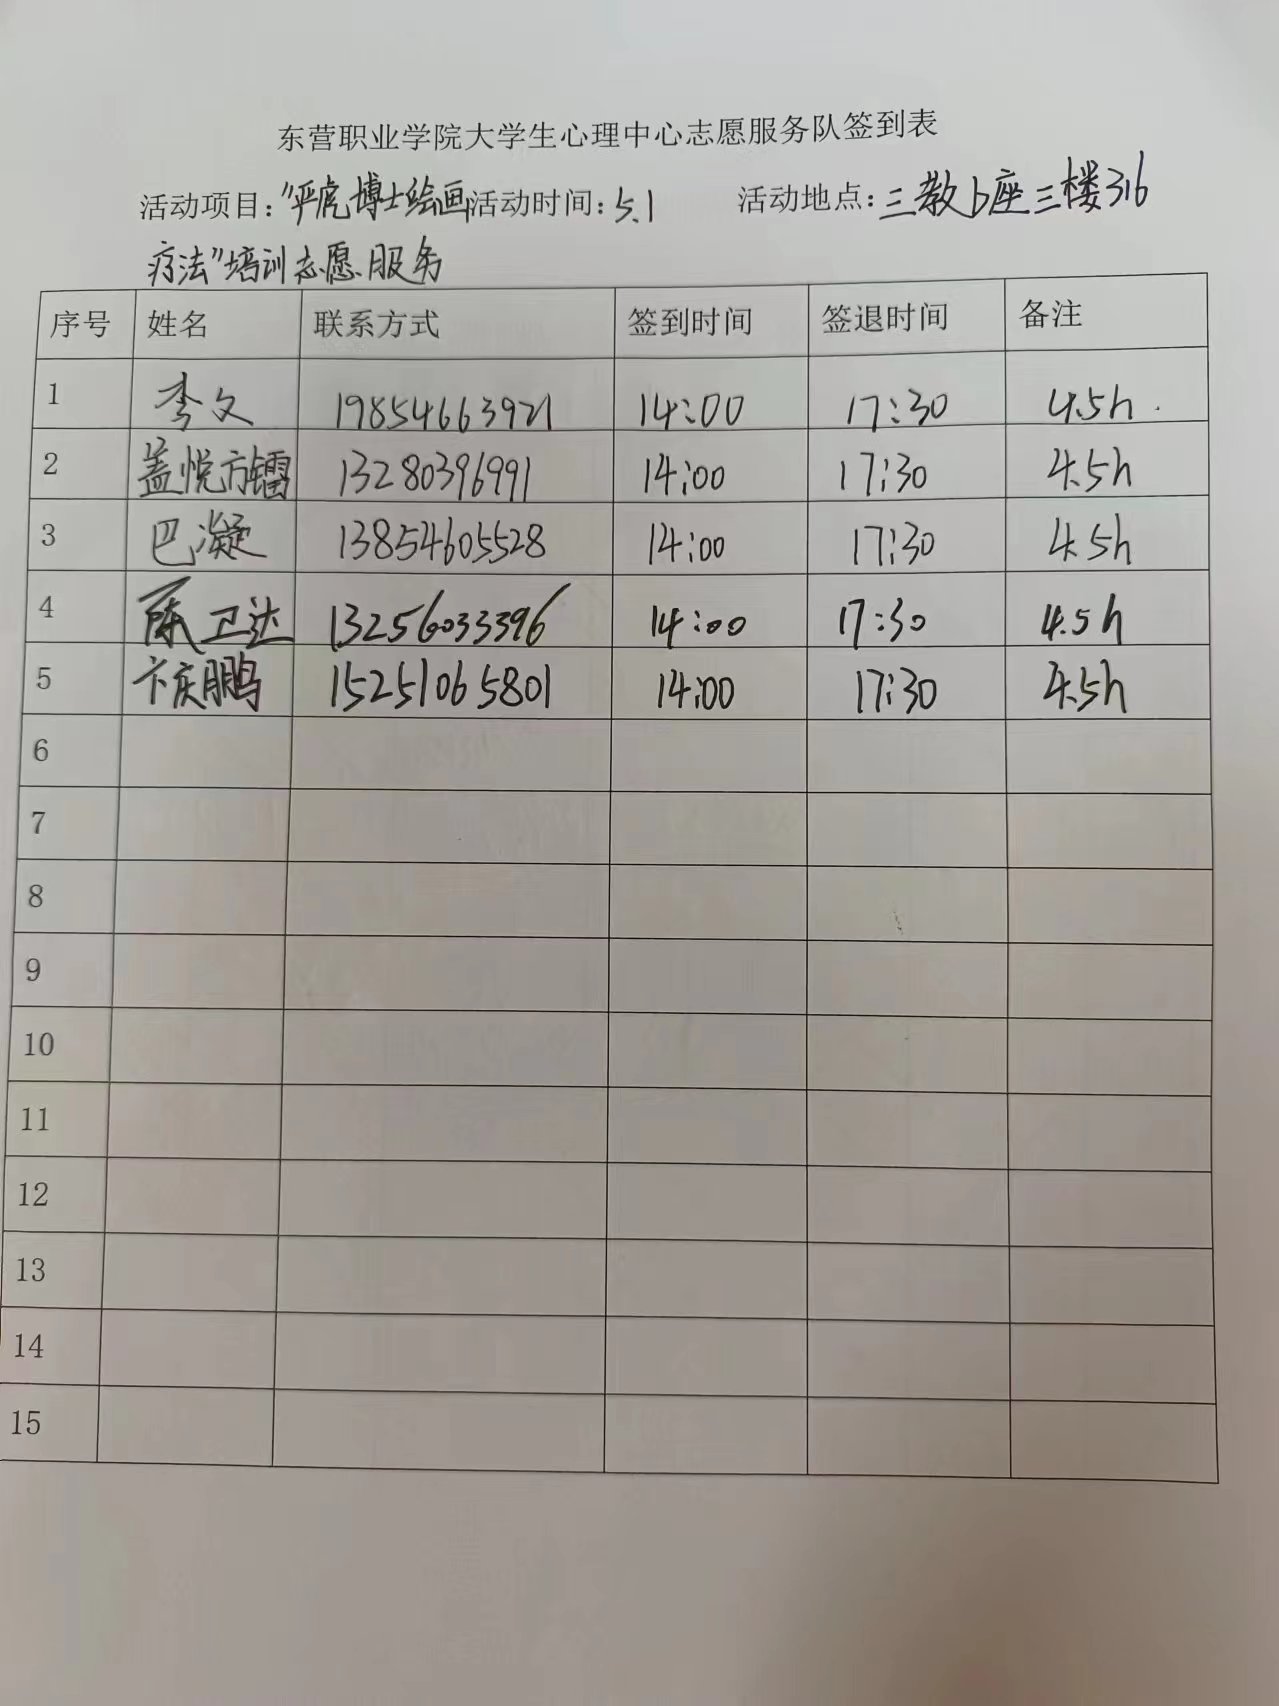 东营职业学院大学生心理中心志愿服务队签到表
活动项目："严虎博士绘画 活动时间：5.1 活动地点：三教b座三楼316
疗法"培训志愿服务
序号 姓名 联系方式 签到时间 签退时间 备注
1 李文 19854663921 14:00 17:30 4.5h
2 盖悦方镭 13280396991 14:00 17:30 4.5h
3 巴凝 13854605528 14:00 17:30 4.5h
4 陈卫达 13256033396 14:00 17:30 4.5h
5 卞庆鹏 15251065801 14:00 17:30 4.5h
6
7
8
9
10
11
12
13
14
15